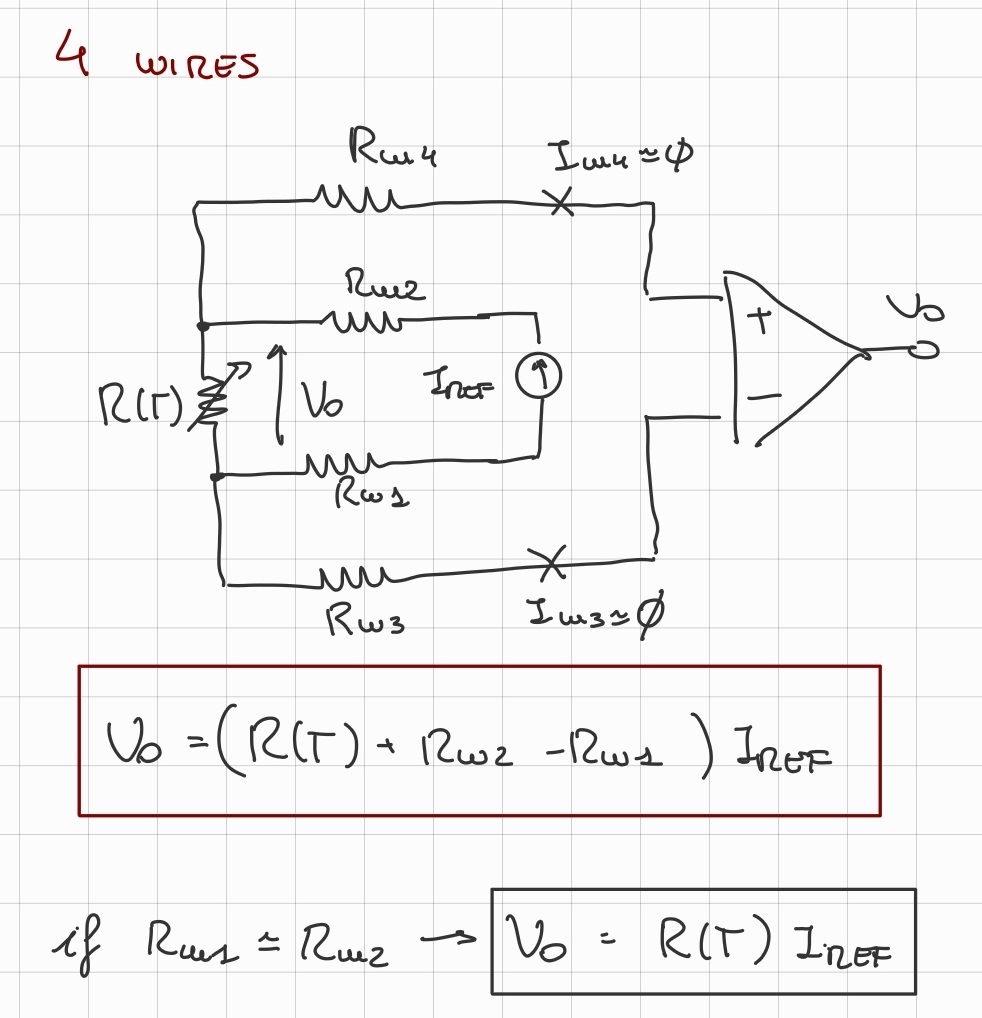 4 WIRES
Rw4
Iw4≃ϕ
Rw2
Vo
+
R(T)
Vo
IREF
−
Rw1
Rw3
Iw3≃ϕ
Vo = (R(T) + Rw2 - Rw1) IREF
if Rw1 ≃ Rw2 → Vo = R(T) IREF